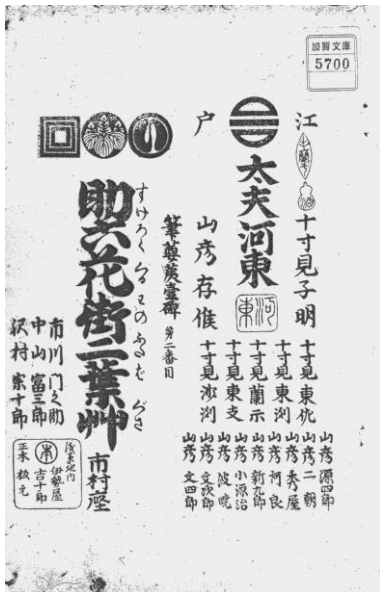 加賀文庫
5700
江
戸
十寸見子明
太夫河東
河東
山彦存候
十寸見東佐
十寸見東洲
十寸見蘭示
十寸見東支
十寸見沙洲
山彦源四郎
山彦二朝
山彦秀屋
山彦河良
山彦新九郎
山彦小源治
山彦波暁
山彦文次郎
山彦文四郎
第二番目
すけろく
助六花街二葉艸
市村座
市川門之助
中山富三郎
沢村宗十郎
伊勢屋
吉十郎
正本板元